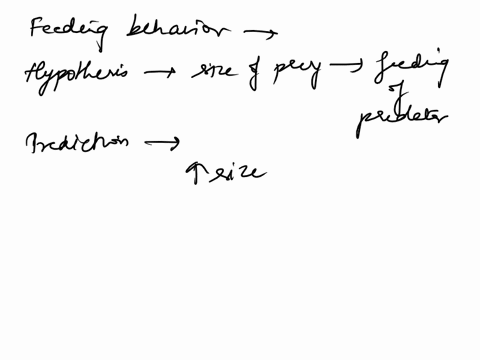 Feeding behavior →
Hypothesis → size of prey → feeding
of
predator
Prediction →
↑ size